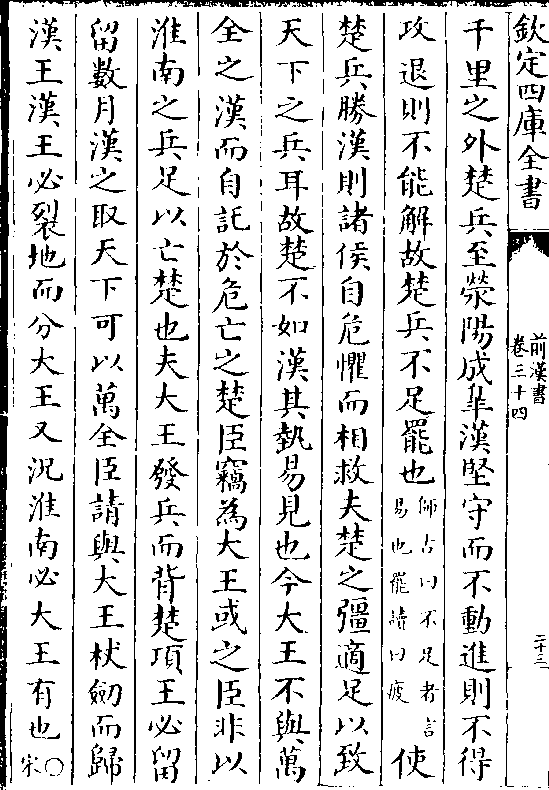 欽定四庫全書
前漢書
卷三十四
二十三
千里之外楚兵至滎陽成臯漢堅守而不動進則不得
攻退則不能解故楚兵不足罷也師古曰不足者言
易也罷讀曰疲使
楚兵勝漢則諸侯自危懼而相救夫楚之彊適足以致
天下之兵耳故楚不如漢其埶易見也今大王不與萬
全之漢而自託於危亡之楚臣竊為大王或之臣非以
淮南之兵足以亡楚也夫大王發兵而背楚項王必留
留數月漢之取天下可以萬全臣請與大王杖劒而歸
漢王漢王必裂地而分大王又況淮南必大王有也○
宋